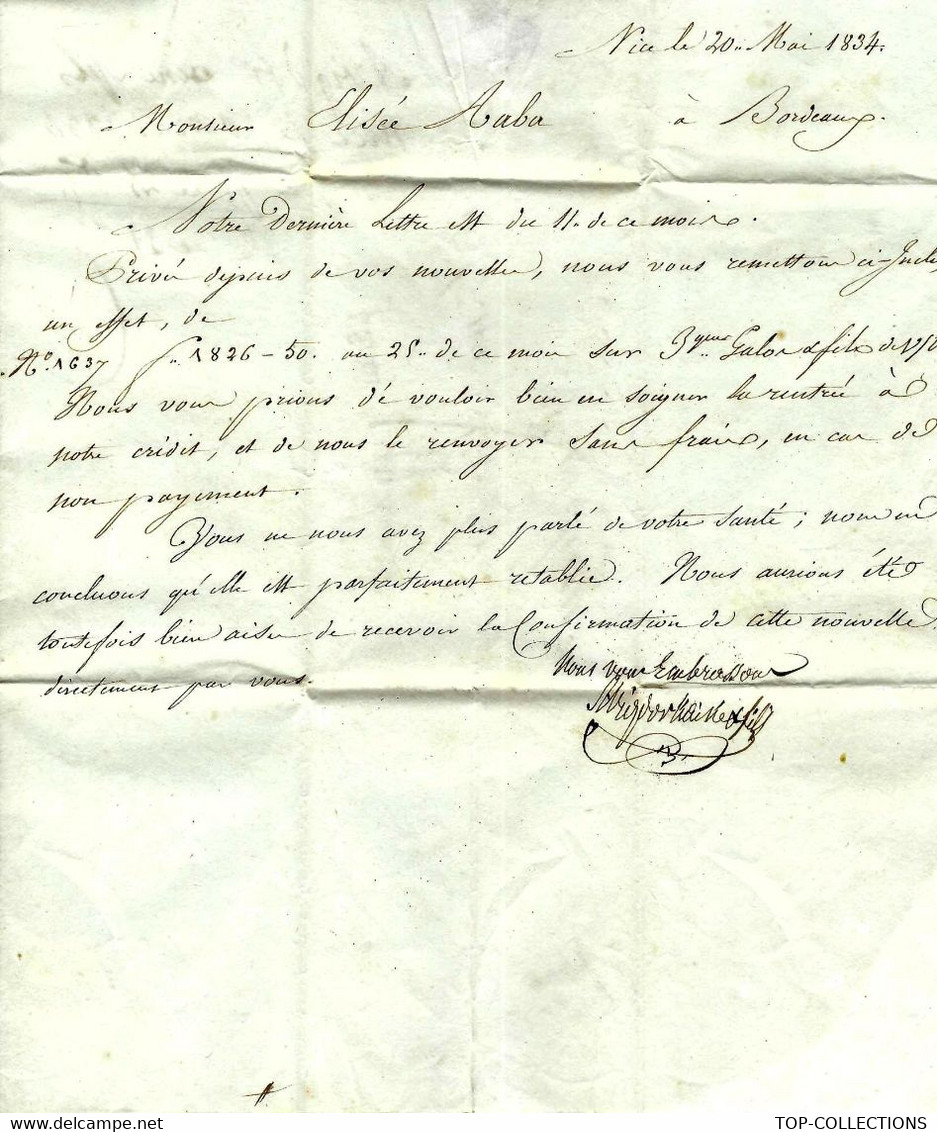 Nice le 20.. Mai 1834.
Monsieur Elisée Raba à Bordeaux.
Notre Dernière Lettre est du 11. de ce mois.
Privés depuis de vos nouvelles, nous vous remettons ci-Inclus,
un effet, de
N° 1637 f.. 1826-50. au 25.. de ce mois sur & fils de V/V
Nous vous prions dé vouloir bien en soigner la rentrée à
notre crédit, et de nous le renvoyer sans frais, en cas de
non payement.
Vous ne nous avez plus parlé de votre santé; nous en
concluons qu'elle est parfaitement retablie. Nous aurions été
toutefois bien aises de recevoir la Confirmation de cette nouvelle
directement par vous.
Nous vous Embrassons
& fils
TOP-COLLECTIONS